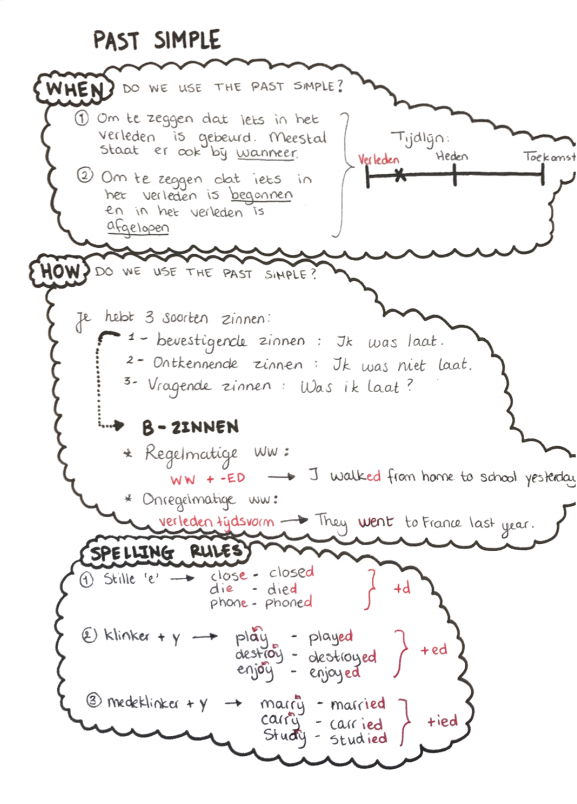 PAST SIMPLE
WHEN DO WE USE THE PAST SIMPLE?
① Om te zeggen dat iets in het
verleden is gebeurd. Meestal
staat er ook bij wanneer.
② Om te zeggen dat iets in
het verleden is begonnen
en in het verleden is
afgelopen
Tijdlijn:
Verleden Heden Toekomst
HOW DO WE USE THE PAST SIMPLE?
Je hebt 3 soorten zinnen:
1- bevestigende zinnen : Ik was laat.
2- Ontkennende zinnen : Ik was niet laat.
3- Vragende zinnen : Was ik laat?
B-ZINNEN
* Regelmatige ww:
WW + -ED → I walked from home to school yesterday
* Onregelmatige ww:
verleden tijdsvorm → They went to France last year.
SPELLING RULES
① Stille 'e' → close - closed
die - died
phone - phoned
+d
② klinker + y → play - played
destroy - destroyed
enjoy - enjoyed
+ed
③ medeklinker + y → marry - married
carry - carried
study - studied
+ied